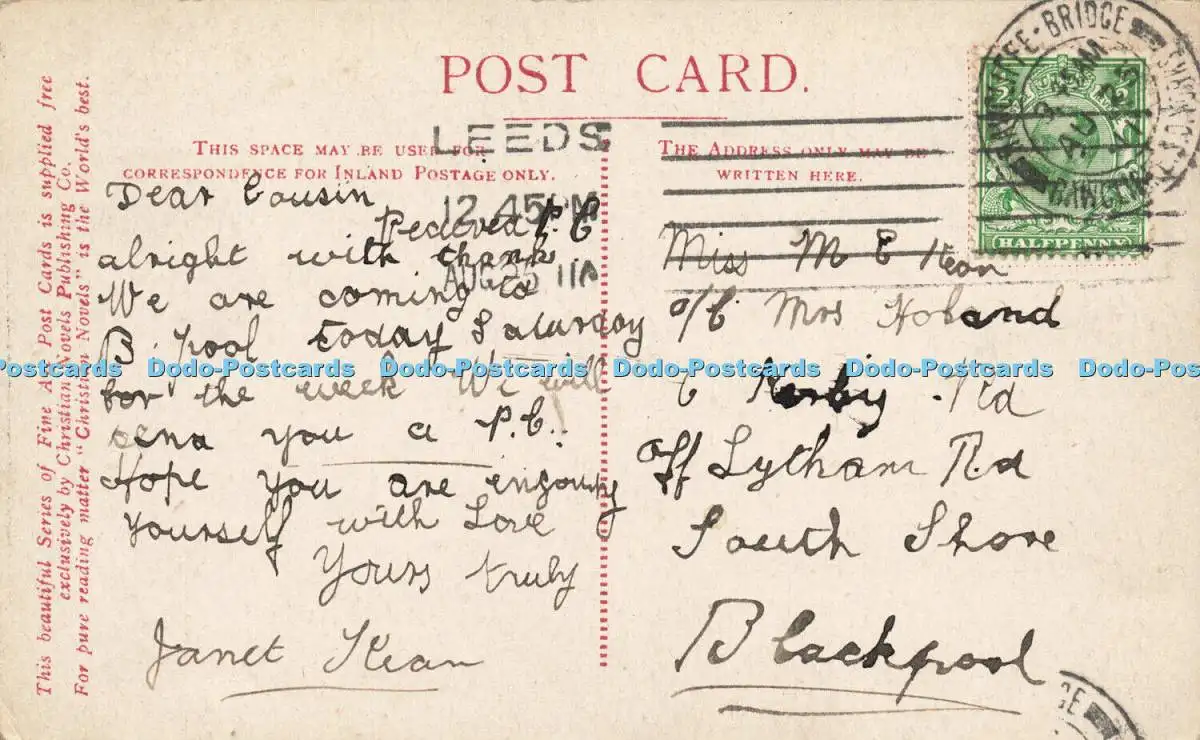 POST CARD.
This beautiful Series of Fine Art Post Cards is supplied free
exclusively by Christian Novels Publishing Co.
For pure reading matter "Christian Novels" is the World's best.
THIS SPACE MAY BE USED FOR
CORRESPONDENCE FOR INLAND POSTAGE ONLY.
THE ADDRESS ONLY MAY BE
WRITTEN HERE.
LEEDS
12.45 PM
AUG 26 11
Dear Cousin
Received P.C
alright with thanks
We are coming to
B. pool today Saturday
for the week We will
send you a P.C.
Hope you are engouing
yourself with Love
Yours truly
Janet Kean
Miss M E Kean
c/o Mrs Holand
6 Kerby Rd
Off Lytham Rd
South Shore
Blackpool
BRIDGE
AU 25
HALFPENNY
GE
Postcards Dodo-Postcards Dodo-Postcards Dodo-Postcards Dodo-Postcards Dodo-Pos